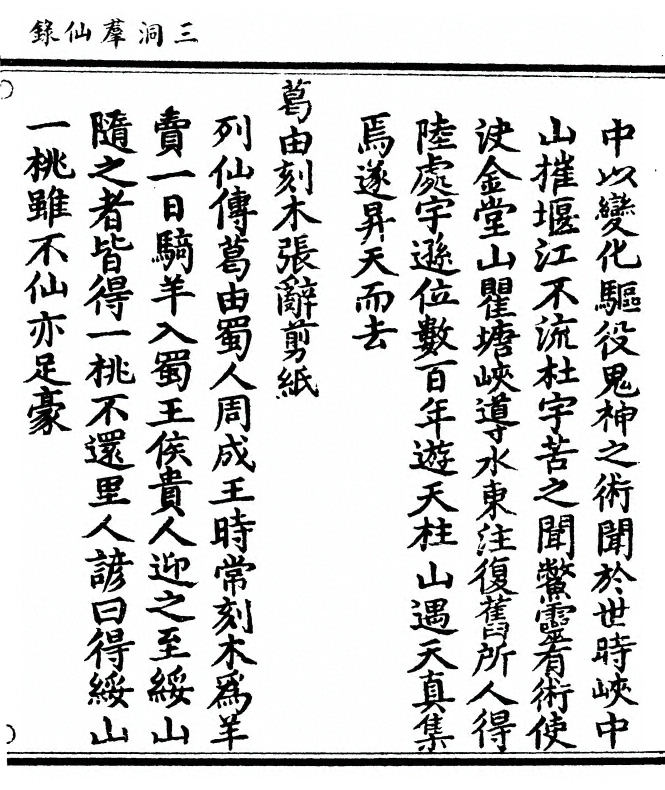 三洞羣仙錄
中以變化驅役鬼神之術聞於世時峽中
山摧堰江不流杜宇苦之聞鱉靈有術使
決金堂山瞿塘峽導水東注復舊所人得
陸處宇遜位數百年遊天柱山遇天真集
焉遂昇天而去
葛由刻木張辭剪紙
列仙傳葛由蜀人周成王時常刻木爲羊
賣一日騎羊入蜀王侯貴人迎之至綏山
隨之者皆得一桃不還里人諺曰得綏山
一桃雖不仙亦足豪